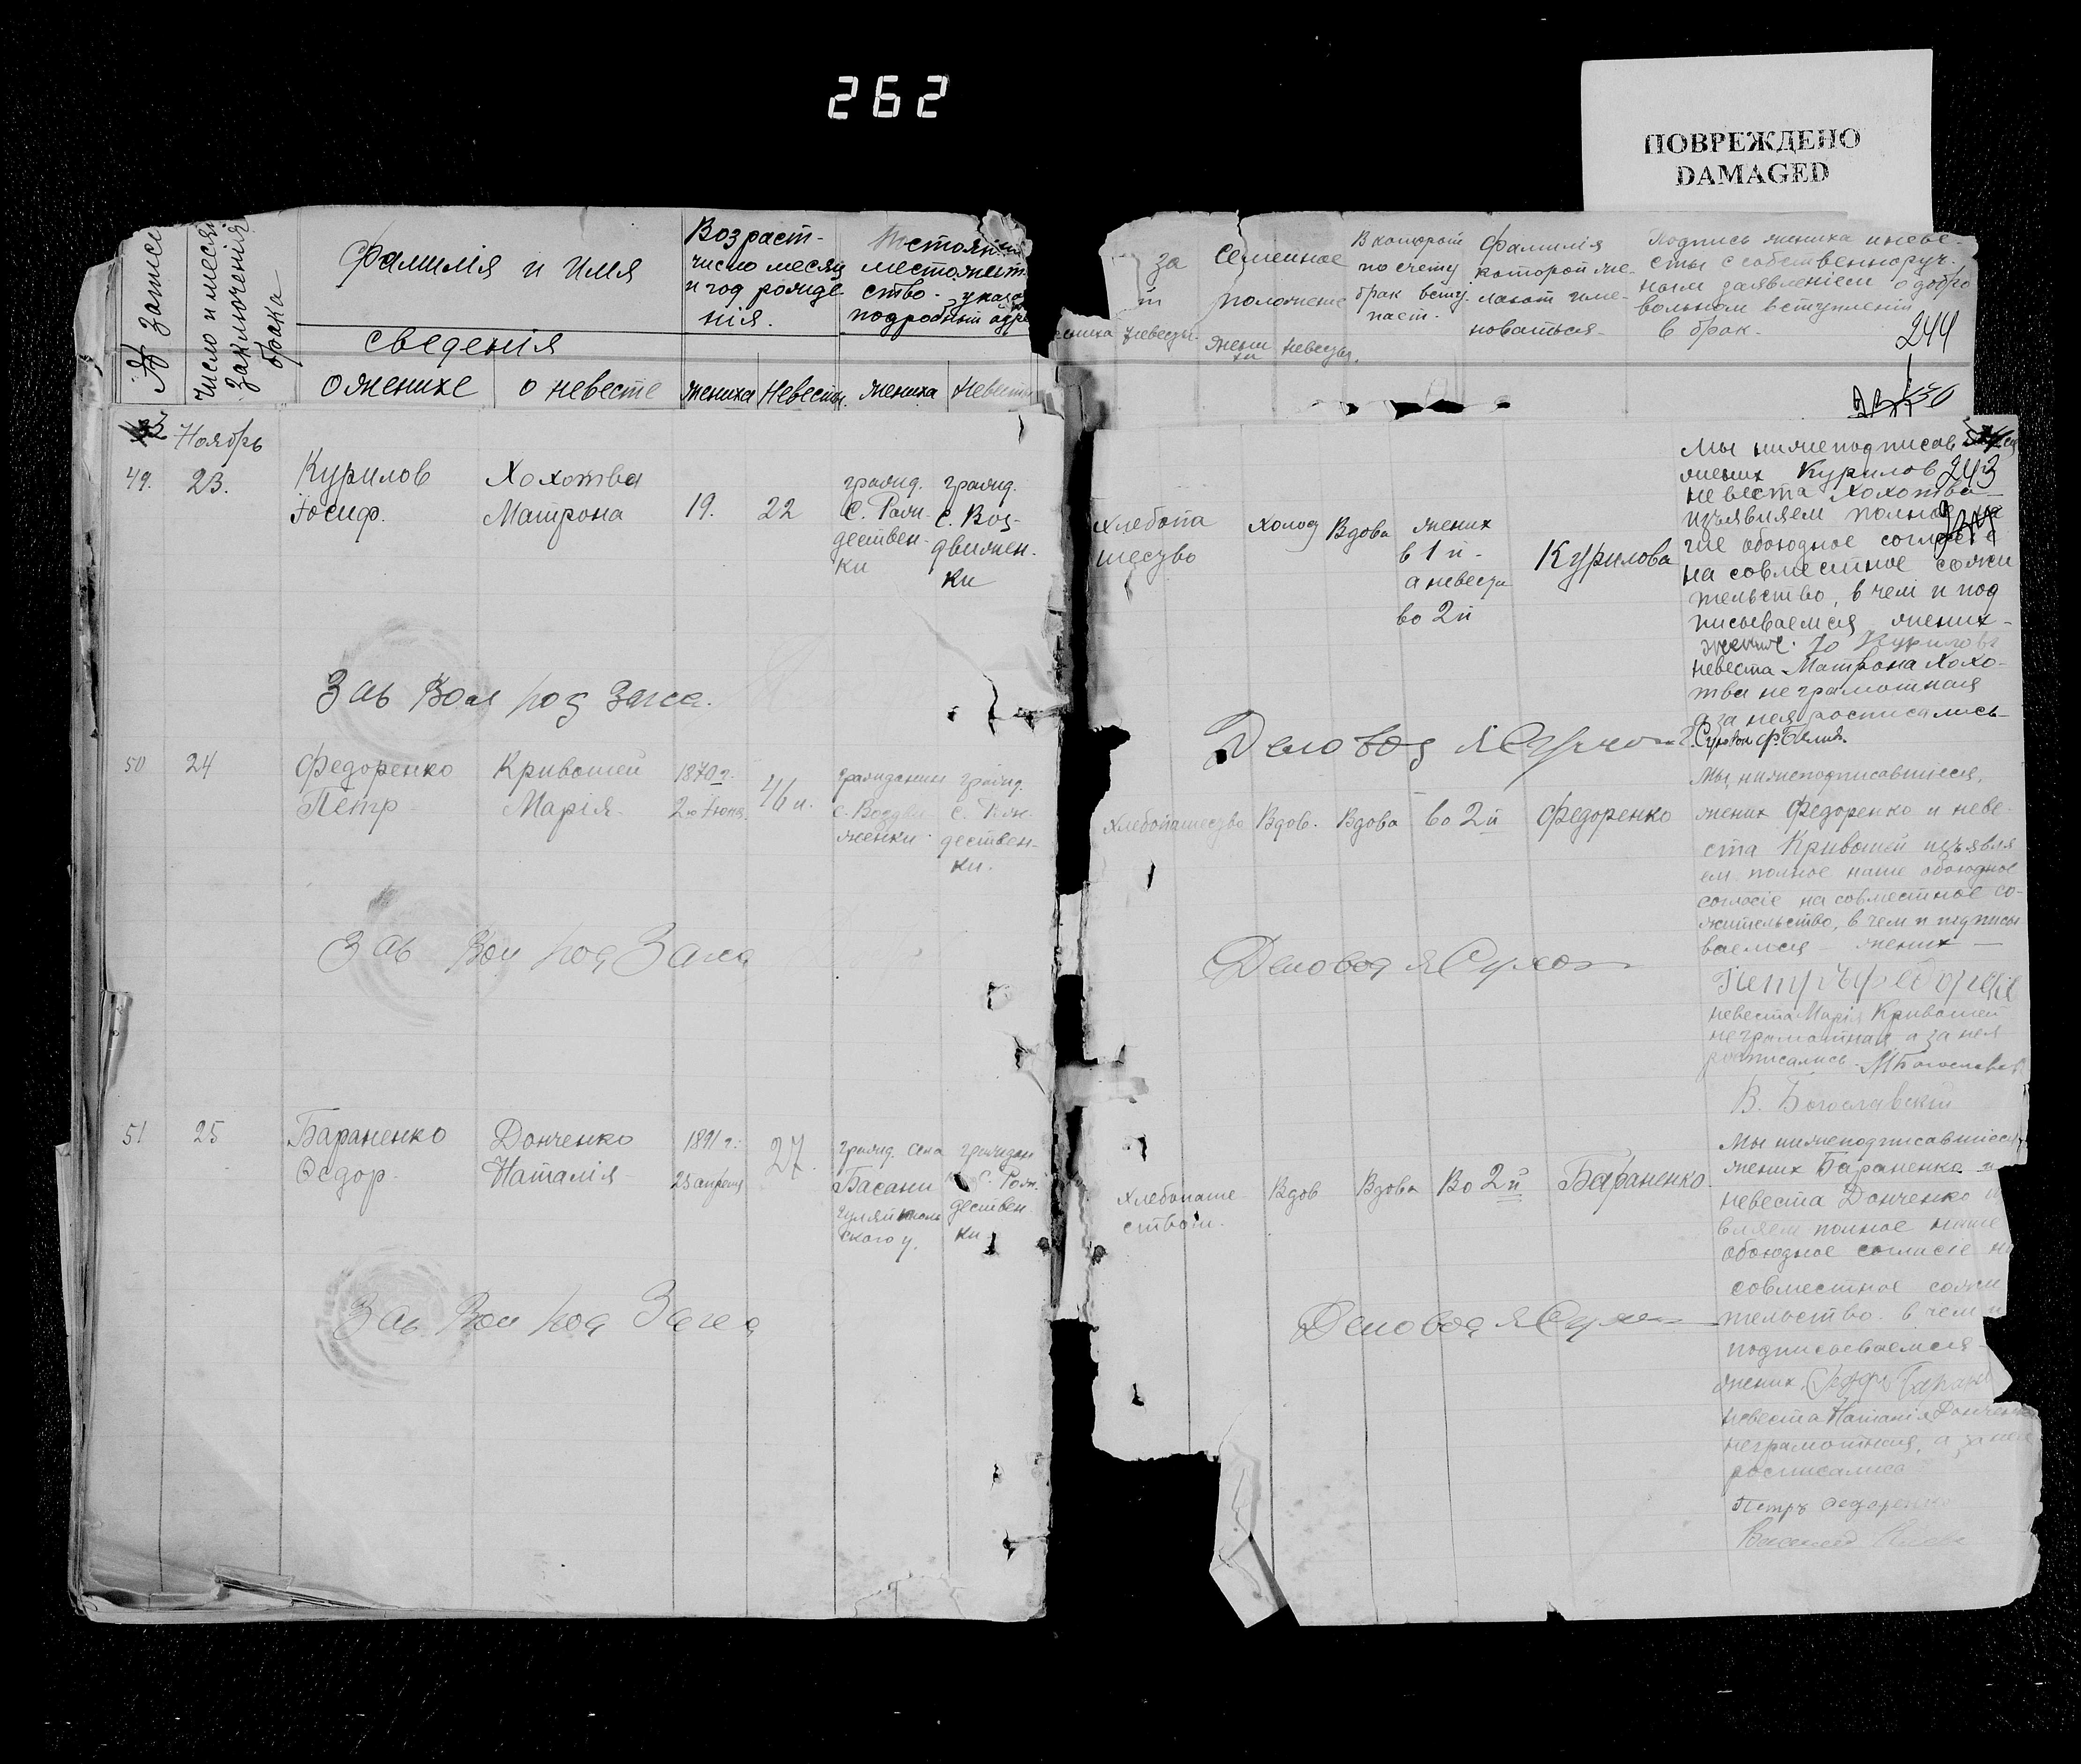 262
ПОВРЕЖДЕНО
DAMAGED
№ Записи
Число и месяц
Заключения
брака
Фамилія и имя
сведенія
о женихе
о невесте
Возраст-
число месяц
и год рожде
нія.
жениха
Невесты.
местожит
ство
подробный
жениха
Невесты
за
невесты.
Семейное
положеніе
жени
ха
невесты.
В который
по счету
брак всту
пает.
Фамилія
которой же-
лают име-
новаться
Подпись жениха и неве-
сты с собственноруч.
ным заявленіем о добро
вольном вступленіи
в брак.
244
Ноябрь
49.
23.
Курилов
Іосиф.
Хохотва
Матрона
19.
22
гражд.
С. Рож-
дествен-
ки
гражд.
с. Воз-
движен.
ки
Хлебопа
шество
холод
Вдова
жених
в 1й -
а невеста
во 2й
Курилова
Мы нижеподписав
жених Курилов
243
невеста Хохотва
изъявляем полное
гіе обоюдное согласіе
на совместное сожи
тельство, в чем и под
писываемся жених-
Курилов
невеста Матрона Хохо-
тва неграмотная
а за нея росписались
Зав Вол под Загса.
Деловод
50
24
Федоренко
Петр
Кривошей
Марія
1870 г.
2го Іюня.
46 л.
гражданин
с. Воздви
женки.
гражд.
с. Рож-
дествен-
ки.
Хлебопашество
Вдов.
Вдова
во 2й
Федоренко
Мы, нижеподписавшіеся,
жених Федоренко и неве-
ста Кривошей изъявля
ем полное наше обоюдное
согласіе на совместное со-
жительство, в чем и подписы
ваемся жених —
Петръ Федоренко
невеста Марія Кривошей
неграмотная а за нея
росписались
В. Богославскій
Зав Вол под Загса
Деловод
51
25
Бараненко
Ѳедор.
Донченко
Наталія
1891 г.
25 апреля
27.
гражд. села
Басани
Гуляйполь
ского у.
граждан
с. Рож.
дествен
ки
Хлебопаше
ством.
Вдов
Вдова
Во 2й
Бараненко.
Мы нижеподписавшіеся,
жених Бараненко и
невеста Донченко
вляем полное наше
обоюдное согласіе на
совместное сожи
тельство. в чем и
подписываемся
жених
невеста Наталія Донченко
неграмотная, а за нея
росписался
Петръ Ѳедоренко
Зав Вол под Загса
Деловод